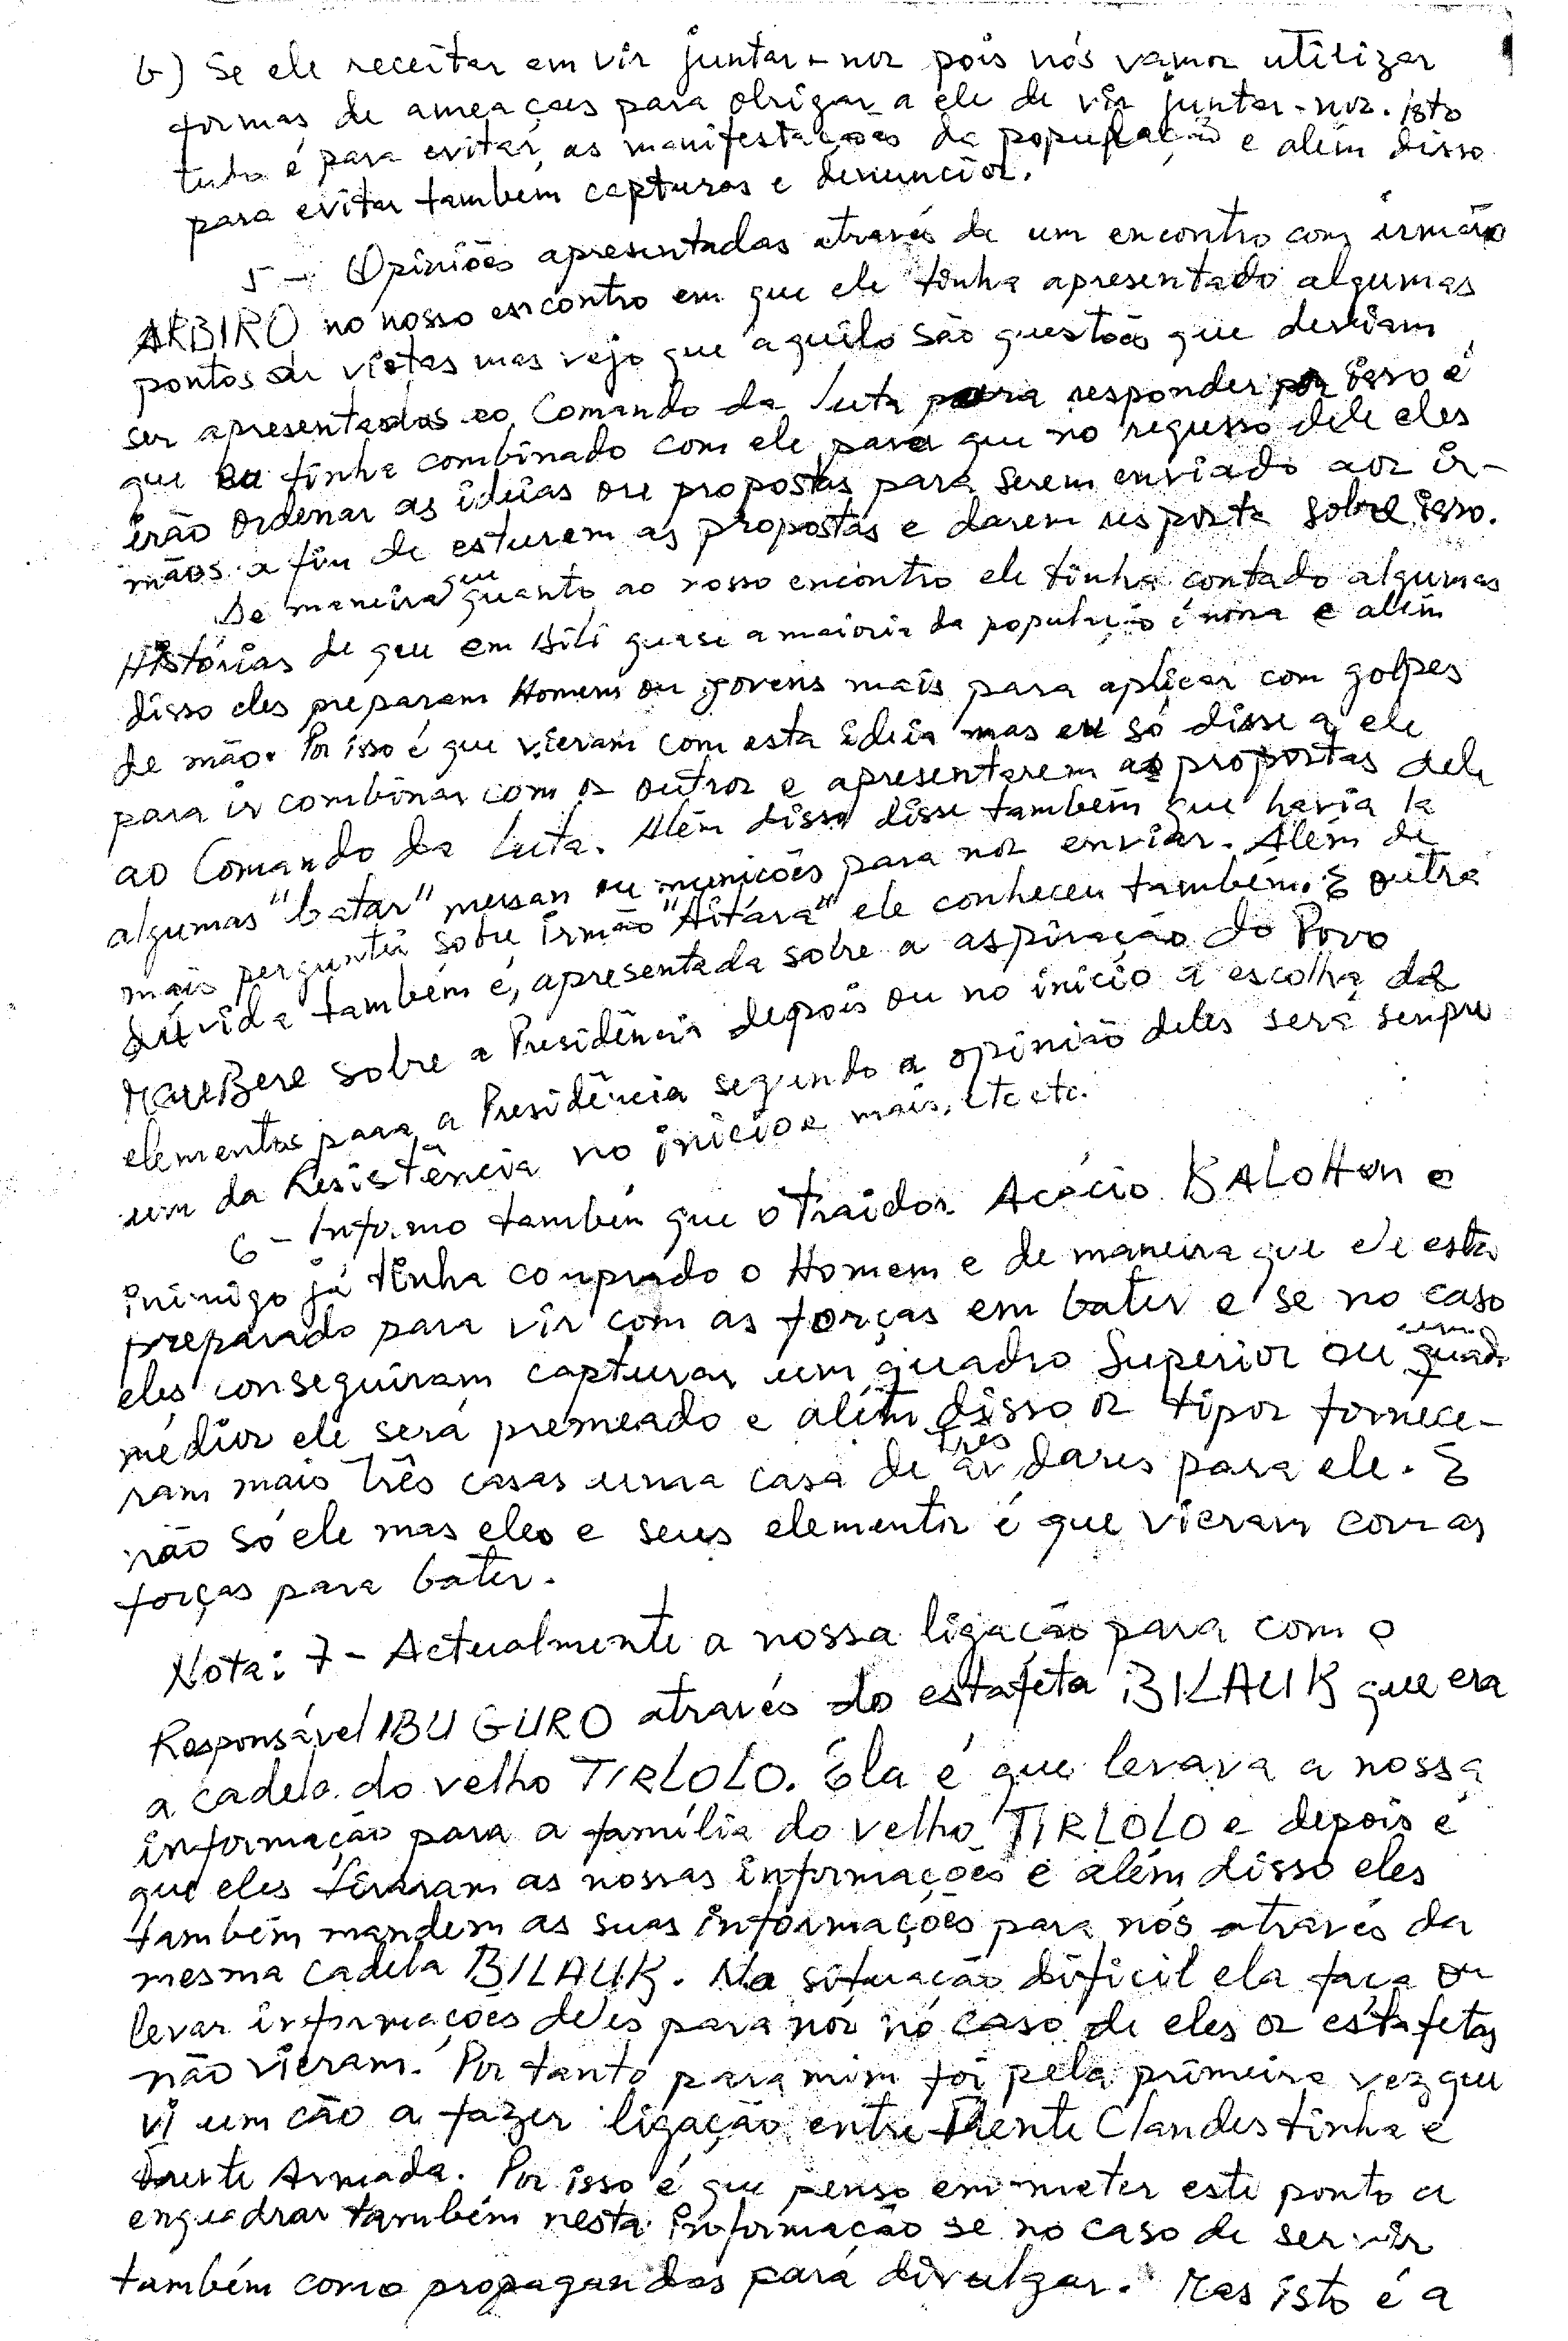 b) Se ele receitar em vir juntar-nos pois nós vamos utilizar
formas de ameaças para obrigar a ele de vir juntar-nos. isto
tudo é para evitar as manifestações da população e além disso
para evitar também capturas e denuncios.
5 - Opiniões apresentadas através de um encontro com irmão
ARBIRO no nosso encontro em que ele tinha apresentado algumas
pontos de vistas mas vejo que aquilo são questões que deviam
ser apresentadas ao Comando da Luta para responder por isso é
que eu tinha combinado com ele para que no regusso dele eles
irão ordenar as ideias ou propostas para serem enviado aos ir-
mãos a fim de esturem as propostas e darem resposta sobre isso.
De maneira que quanto ao nosso encontro ele tinha contado algumas
Histórias de que em Dili quase a maioria da população é nossa e além
disso eles preparam Homens ou jovens mais para aplicar com golpes
de mão. Por isso é que vieram com esta ideia mas eu só disse a ele
para ir combinar com os outros e apresentarem as propostas dele
ao Comando da Luta. Além disso disse também que havia la
algumas "batar" mussan ou municões para nos enviar. Além de
mais perguntei sobre irmão "Aitára" ele conheceu também. E outra
duvida também é, apresentada sobre a aspiração do Povo
MauBere sobre a Presidência depois ou no inicio a escolha de
elementos para a Presidência segundo a opinião deles será senpre
um da Resistência no inicio e mais, etc etc.
6 - Informo também que o traidor Acácio BALOHan e
inimigo já tinha conprado o Homem e de maneira que ele esta
preparado para vir com as forças em bater e se no caso
eles conseguiram capturar um quadro Superior ou um quadr
médior ele será premeado e além disso os tipos fornece-
ram mais três casas uma casa de três andares para ele. E
não só ele mas eles e seus elementos é que vieram com as
forças para bater.
Nota: 7 - Actualmente a nossa ligacão para com o
Responsável IBU GURO através do estafeta BILAUK que era
a cadela do velho TIRLOLO. Ela é que levava a nossa
informação para a família do velho TIRLOLO e depois é
que eles tiraram as nossas informações e além disso eles
também mandem as suas informações para nós através da
mesma cadela BILAUK. Na situação dificil ela faca ou
levar informações deles para nós no caso de eles os estafetas
não vieram. Por tanto para mim foi pela primeira vez que
vi um cão a fazer ligação entre Frente Clandestinha e
Frente Armada. Por isso é que penso em meter este ponto a
enquadrar também nesta informação se no caso de servir
também como propagandas para divulgar. Mas isto é a